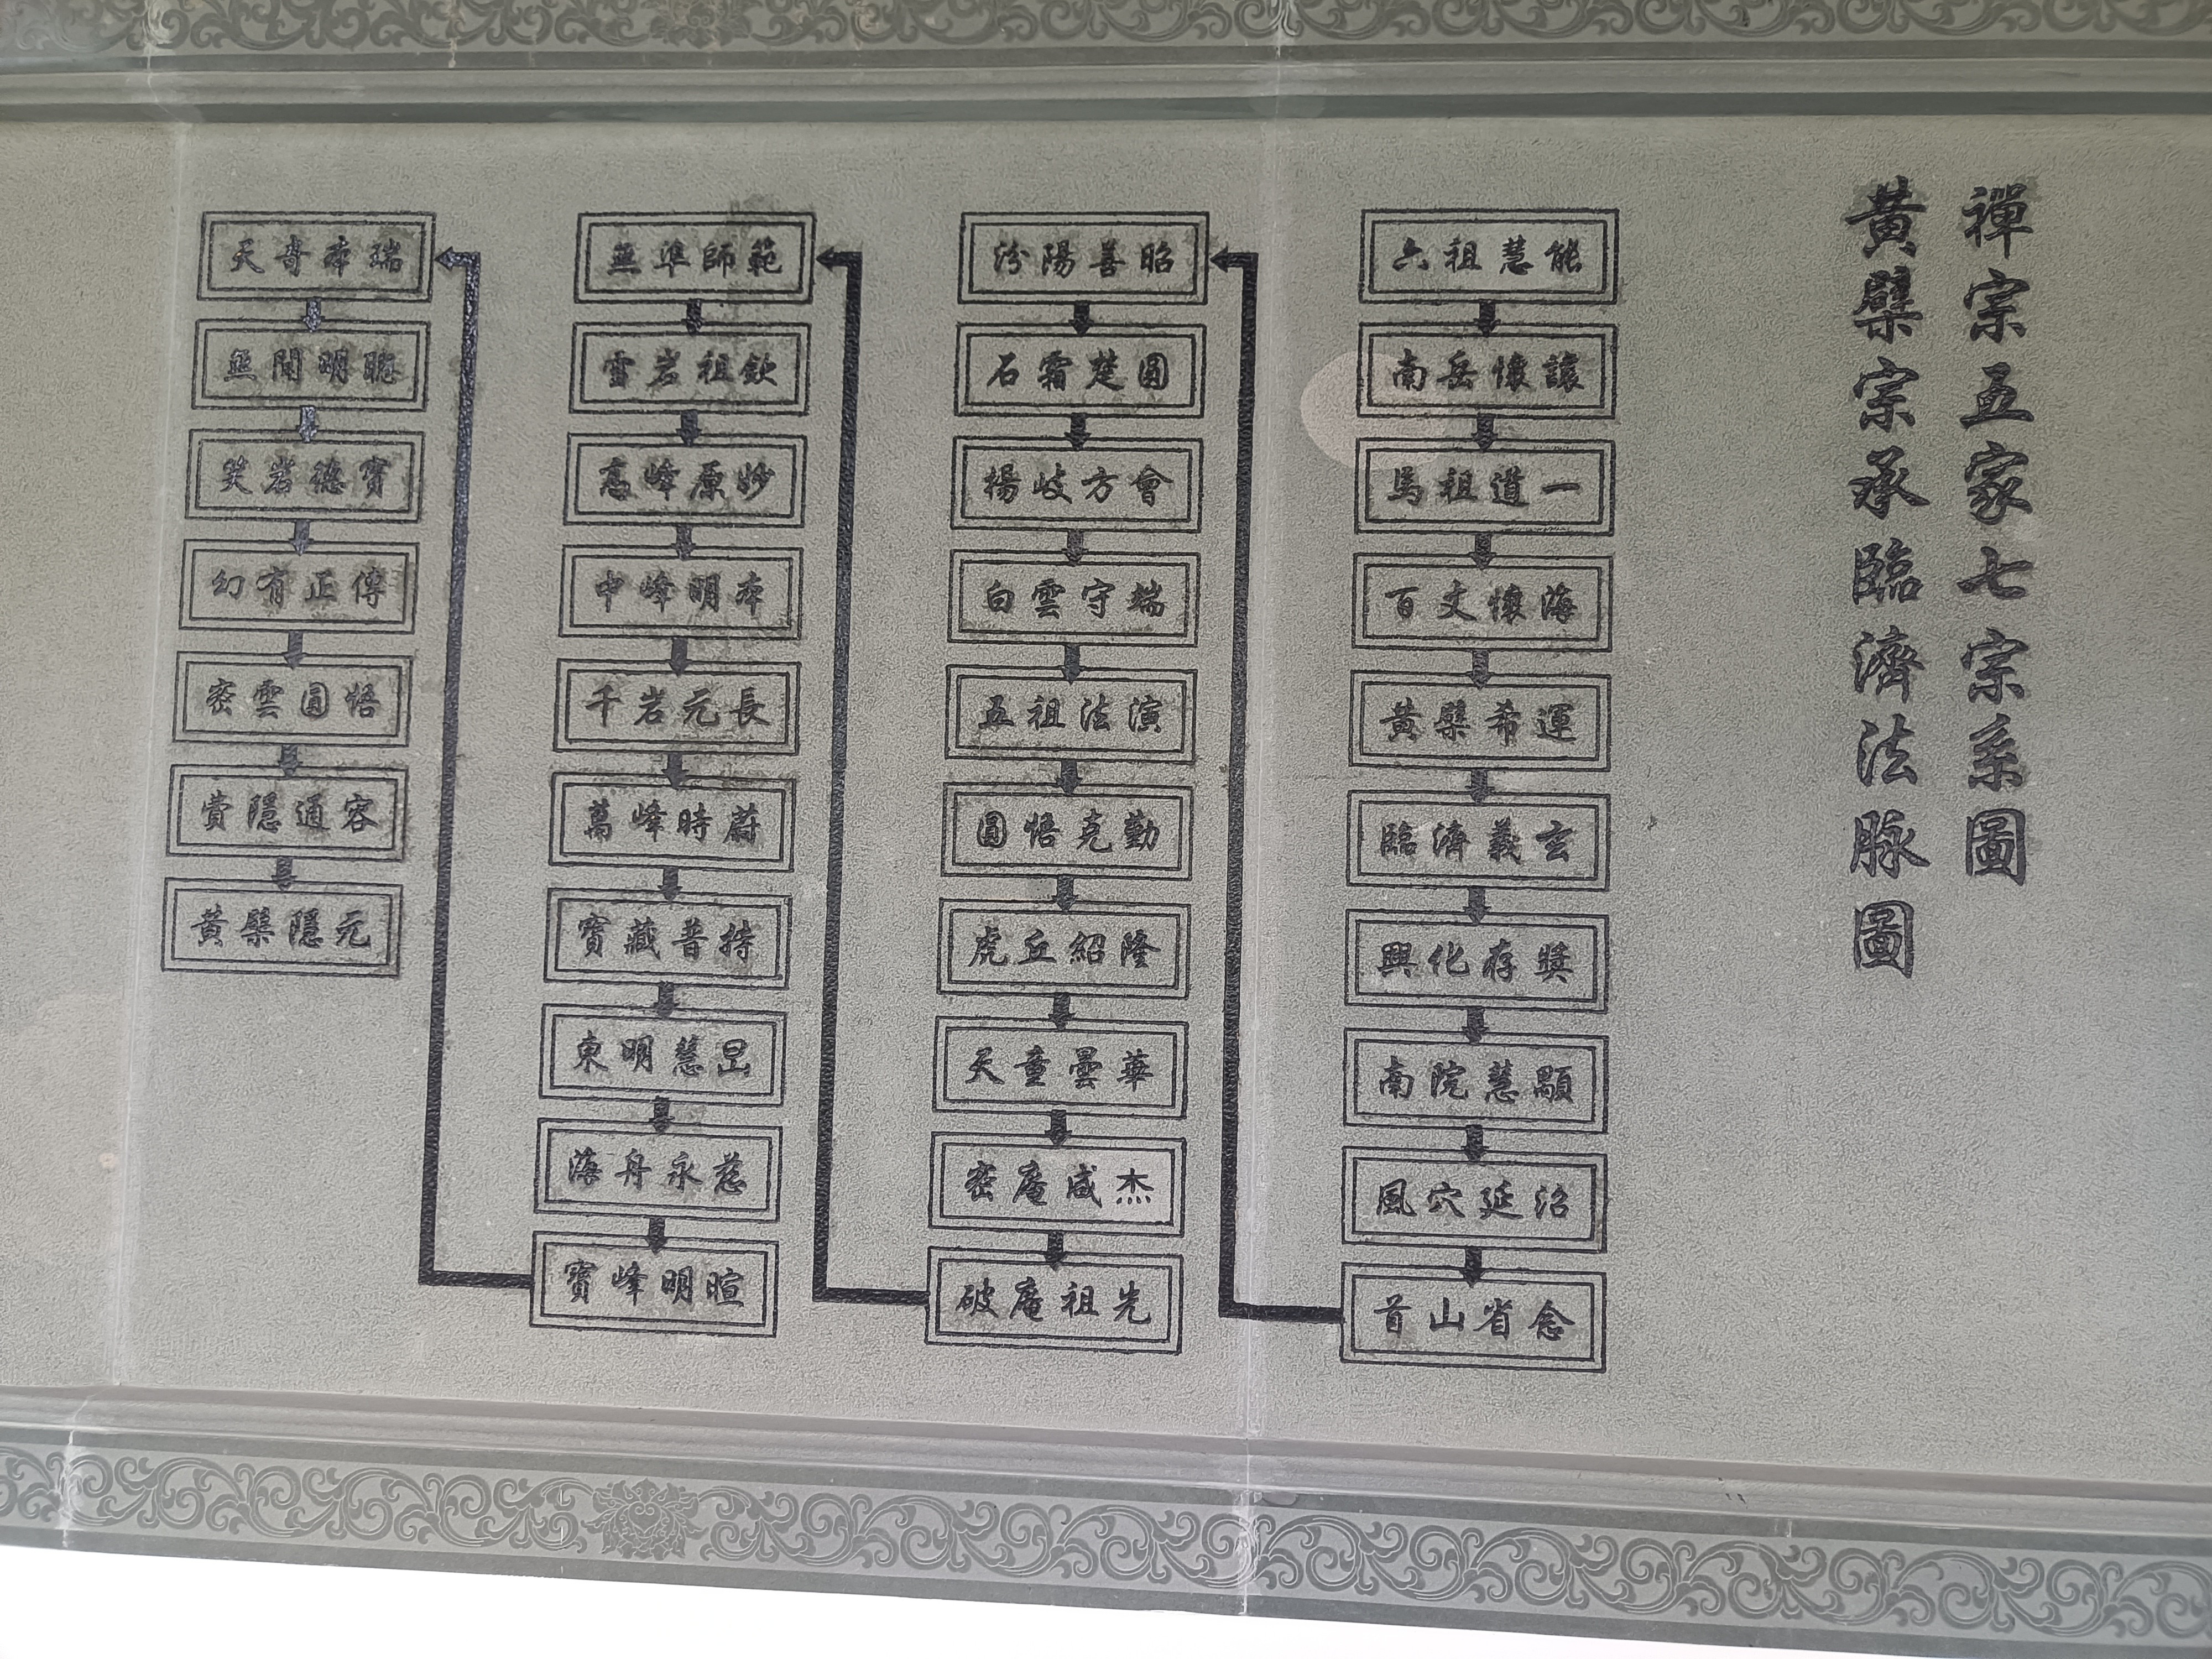 禪宗五家七宗系圖
黃檗宗承臨濟法脉圖
六祖慧能
南岳懷讓
馬祖道一
百丈懷海
黃檗希運
臨濟義玄
興化存獎
南院慧顒
風穴延沼
首山省念
汾陽善昭
石霜楚圓
揚岐方會
白雲守端
五祖法演
圓悟克勤
虎丘紹隆
天童曇華
密庵咸杰
破庵祖先
無準師範
雪岩祖欽
高峰原妙
中峰明本
千岩元長
萬峰時蔚
寶藏普持
東明慧旵
海舟永慈
寶峰明暄
天奇本瑞
無聞明聰
笑岩德寶
幻有正傳
密雲圓悟
費隱通容
黃檗隱元